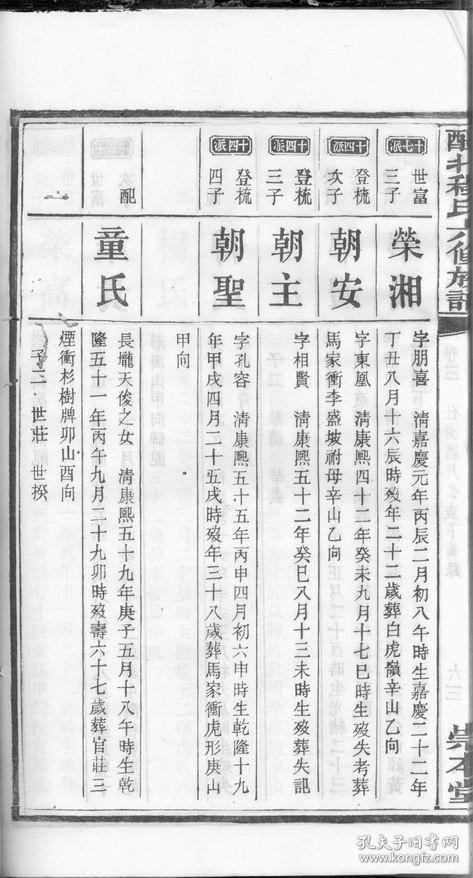 六修族譜
六三
崇本堂
十七派
世富
三子
榮湘
字朋喜 清嘉慶元年丙辰二月初八午時生嘉慶二十二年
丁丑八月十六辰時歿年二十二歲葬白虎嶺辛山乙向
十四派
登梳
次子
朝安
字東凰 清康熙四十二年癸未九月十七巳時生歿失考葬
馬家衝李盛坡祔母辛山乙向
十四派
登梳
三子
朝主
字相賢 清康熙五十二年癸巳八月十三未時生歿葬失記
十四派
登梳
四子
朝聖
字孔容 清康熙五十五年丙申四月初六申時生乾隆十九
年甲戌四月二十五戌時歿年三十八歲葬馬家衝虎形庚山
甲向
配
童氏
長壠天俊之女 清康熙五十九年庚子五月十八午時生乾
隆五十一年丙午九月二十九卯時歿壽六十七歲葬官莊三
煙衝杉樹牌卯山酉向
子二 世莊 世揆
孔夫子旧书网